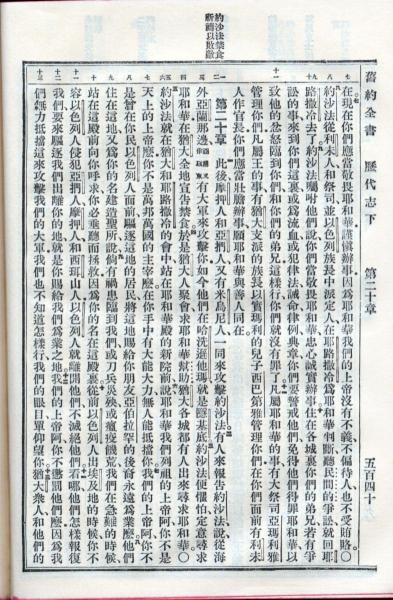 約沙法禁食
祈禱以敗敵
舊約全書　歷代志下　第二十章　五百四十
在現在你們應當敬畏耶和華謹慎辦事因爲耶和華我們的上帝沒有不義不偏待人也不受賄賂〇
約沙法從利未人和祭司並以色列族長中派定人在耶路撒冷爲耶和華判斷聽民間的爭訟就回耶
路撒冷去了約沙法囑咐他們說你們當敬畏耶和華忠心誠實辦事住在各城裏你們的弟兄若有爭
訟的事來到你們這裏或爲流血或犯律法誡命律例典章你們要警戒他們免得他們得罪耶和華以
致他的忿怒臨到你們和你們的弟兄這樣行你們就沒有罪了凡屬耶和華的事有大祭司亞瑪利雅
管理你們凡屬王的事有猶大支派的族長以實瑪利的兒子西巴第雅管理你們在你們面前有利未
人作官長你們應當壯膽辦事願耶和華與善人同在
第二十章　此後摩押人和亞捫人又有米烏尼人一同來攻擊約沙法有人來報告約沙法說從海
外亞蘭那邊有大軍來攻擊你如今他們在哈洗遜他瑪就是隱基底約沙法便懼怕定意尋求
耶和華在猶大全地宣告禁食於是猶大人聚會求耶和華幫助猶大各城都有人出來尋求耶和華〇
約沙法就在猶大和耶路撒冷的會中站在耶和華殿的新院前說耶和華我們列祖的上帝阿你不是
天上的上帝麽你不是萬邦萬國的主宰麽在你手中有大能大力無人能抵擋你我們的上帝阿你不
是曾在你民以色列人面前驅逐這地的居民將這地賜給你朋友亞伯拉罕的後裔永遠爲業麽他們
住在這地又爲你的名建造聖所說倘有禍患臨到我們或刀兵災殃或瘟疫饑荒我們在急難的時候
站在這殿前向你呼求你必垂聽而拯救因爲你的名在這殿裏從前以色列人出埃及地的時候你不
容以色列人侵犯亞捫人摩押人和西珥山人以色列人就離開他們不滅絕他們看哪他們怎樣報復
我們要來驅逐我們出離你的地就是你賜給我們爲業之地我們的上帝阿你不懲罰他們麽因爲我
們無力抵擋這來攻擊我們的大軍我們也不知道怎樣行我們的眼目單仰望你猶大衆人和他們的